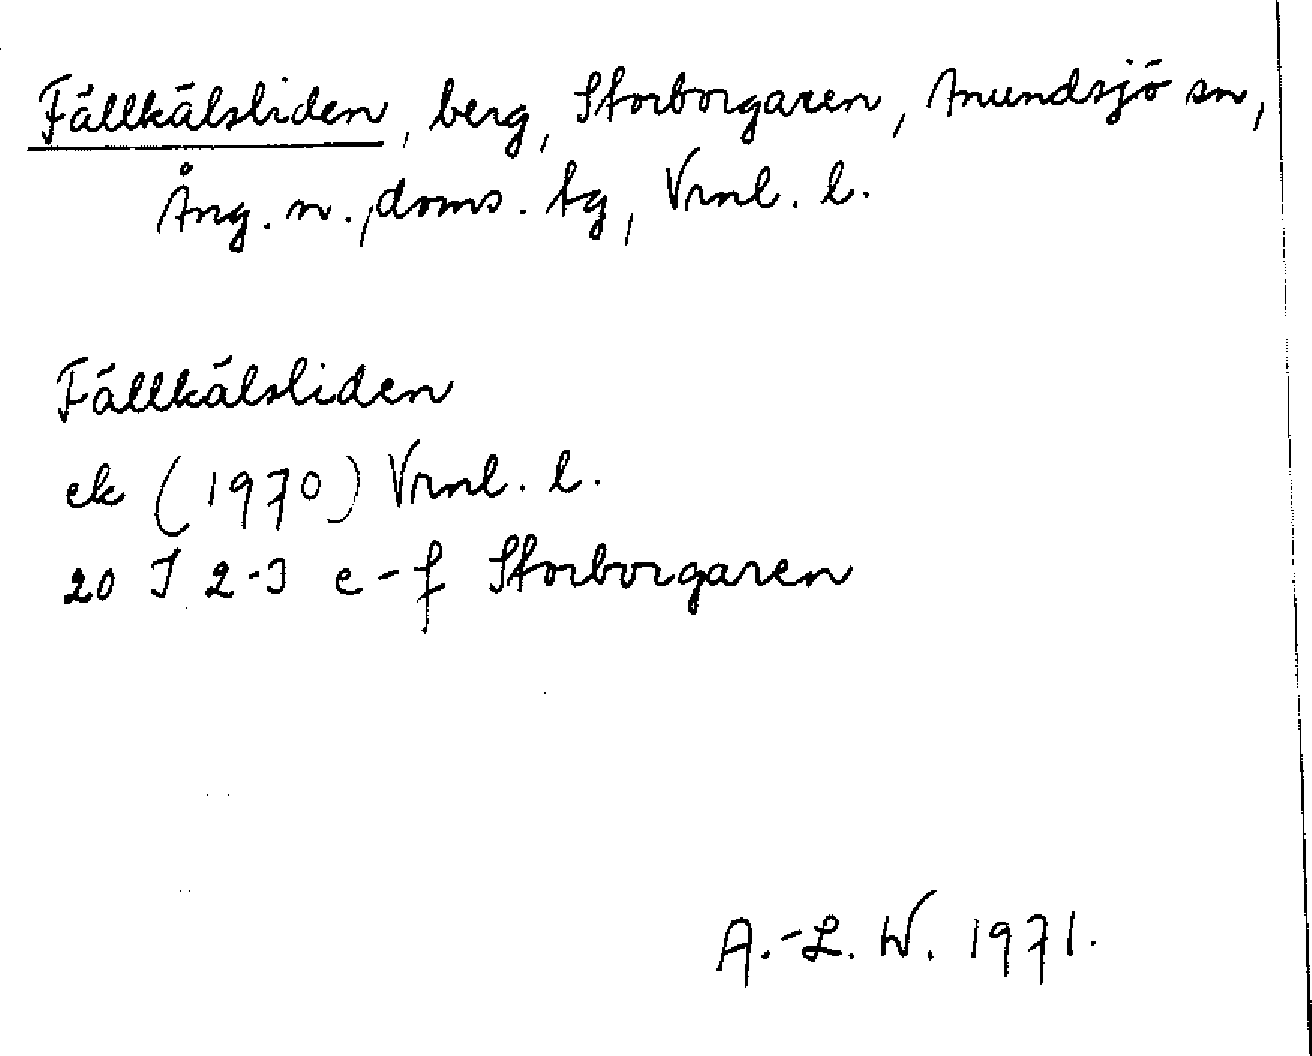 Fällkälsliden, berg, Storborgaren, Anundsjö sn,
Ång. n., doms. tg, Vrnl. l.
Fällkälsliden
ek (1970) Vrnl. l.
20 I 2-3 e-f Storborgaren
A.-L. W. 1971.